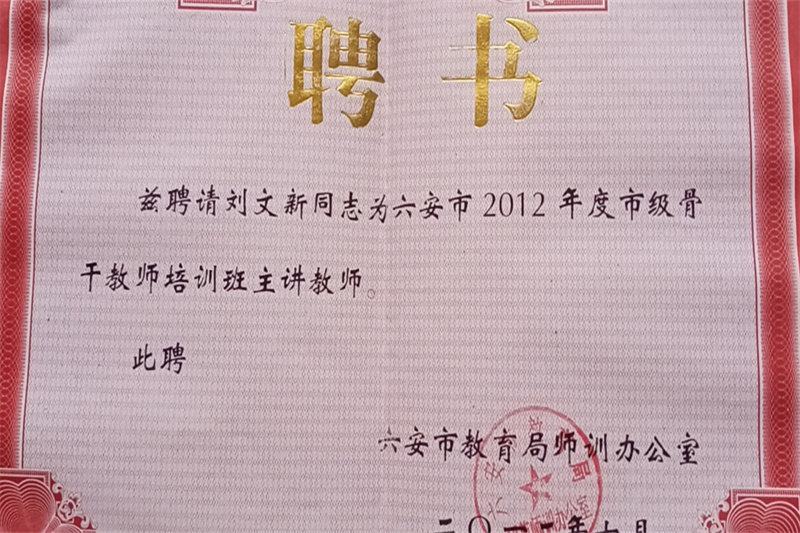 聘书
兹聘请刘文新同志为六安市2012年度市级骨
干教师培训班主讲教师。
此聘
六安市教育局师训办公室
二〇一二年七月